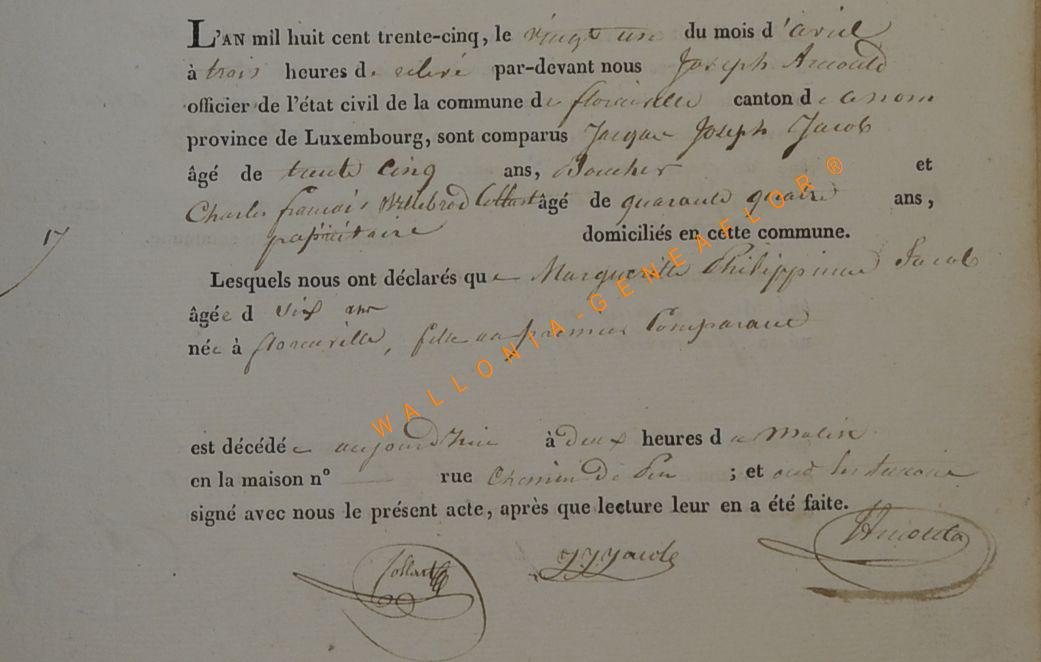 L'AN mil huit cent trente-cinq, le vingt un du mois d'avril
à trois heures de relevé par-devant nous Joseph Arnould
officier de l'état civil de la commune de florenville canton de ce nom
province de Luxembourg, sont comparus Jacque Joseph Jacob
âgé de trente cinq ans, Boucher et
Charles francois Willebrod Collart âgé de quarante quatre ans,
17
propriétaire domiciliés en cette commune.
Lesquels nous ont déclarés que Marguerite Philippine Jacob
âgée d six ans
née à florenville, fille au premier Comparant
est décédée aujourd'hui à deux heures du Matin
en la maison n° rue Chemin de ; et ont les
signé avec nous le présent acte, après que lecture leur en a été faite.
Collart J.J. Jacob Arnould
WALLONIA-GENEAFLOR®